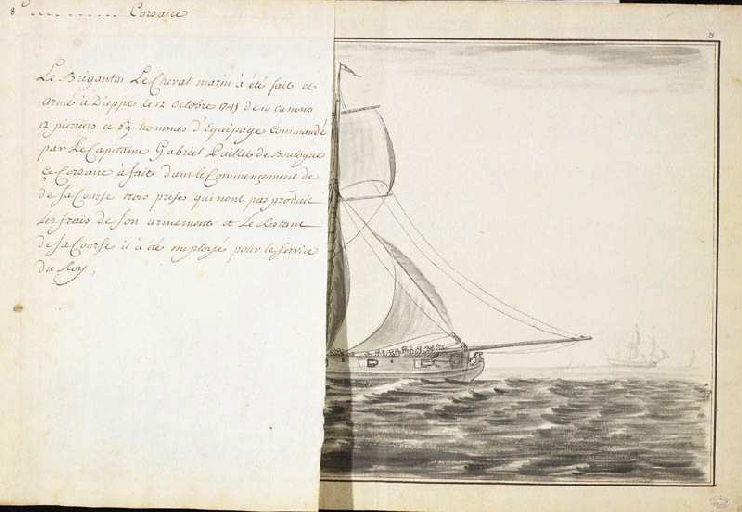 8 Corsaire
Le Brigantin Le Cheval marin à été fait et
armé à Dieppe le 12 octobre 1745 de 10 canons
12 pierriers et 69 hommes d'Equipage Commandé
par Le Capitaine Gabriel Paillet de Boulogne
Ce Corsaire à fait dans le Commencement de
de sa Course trois prises qui n'ont pas produit
les frais de son armement et le Restant
de sa Course il à été employé pour le service
du Roy;
8